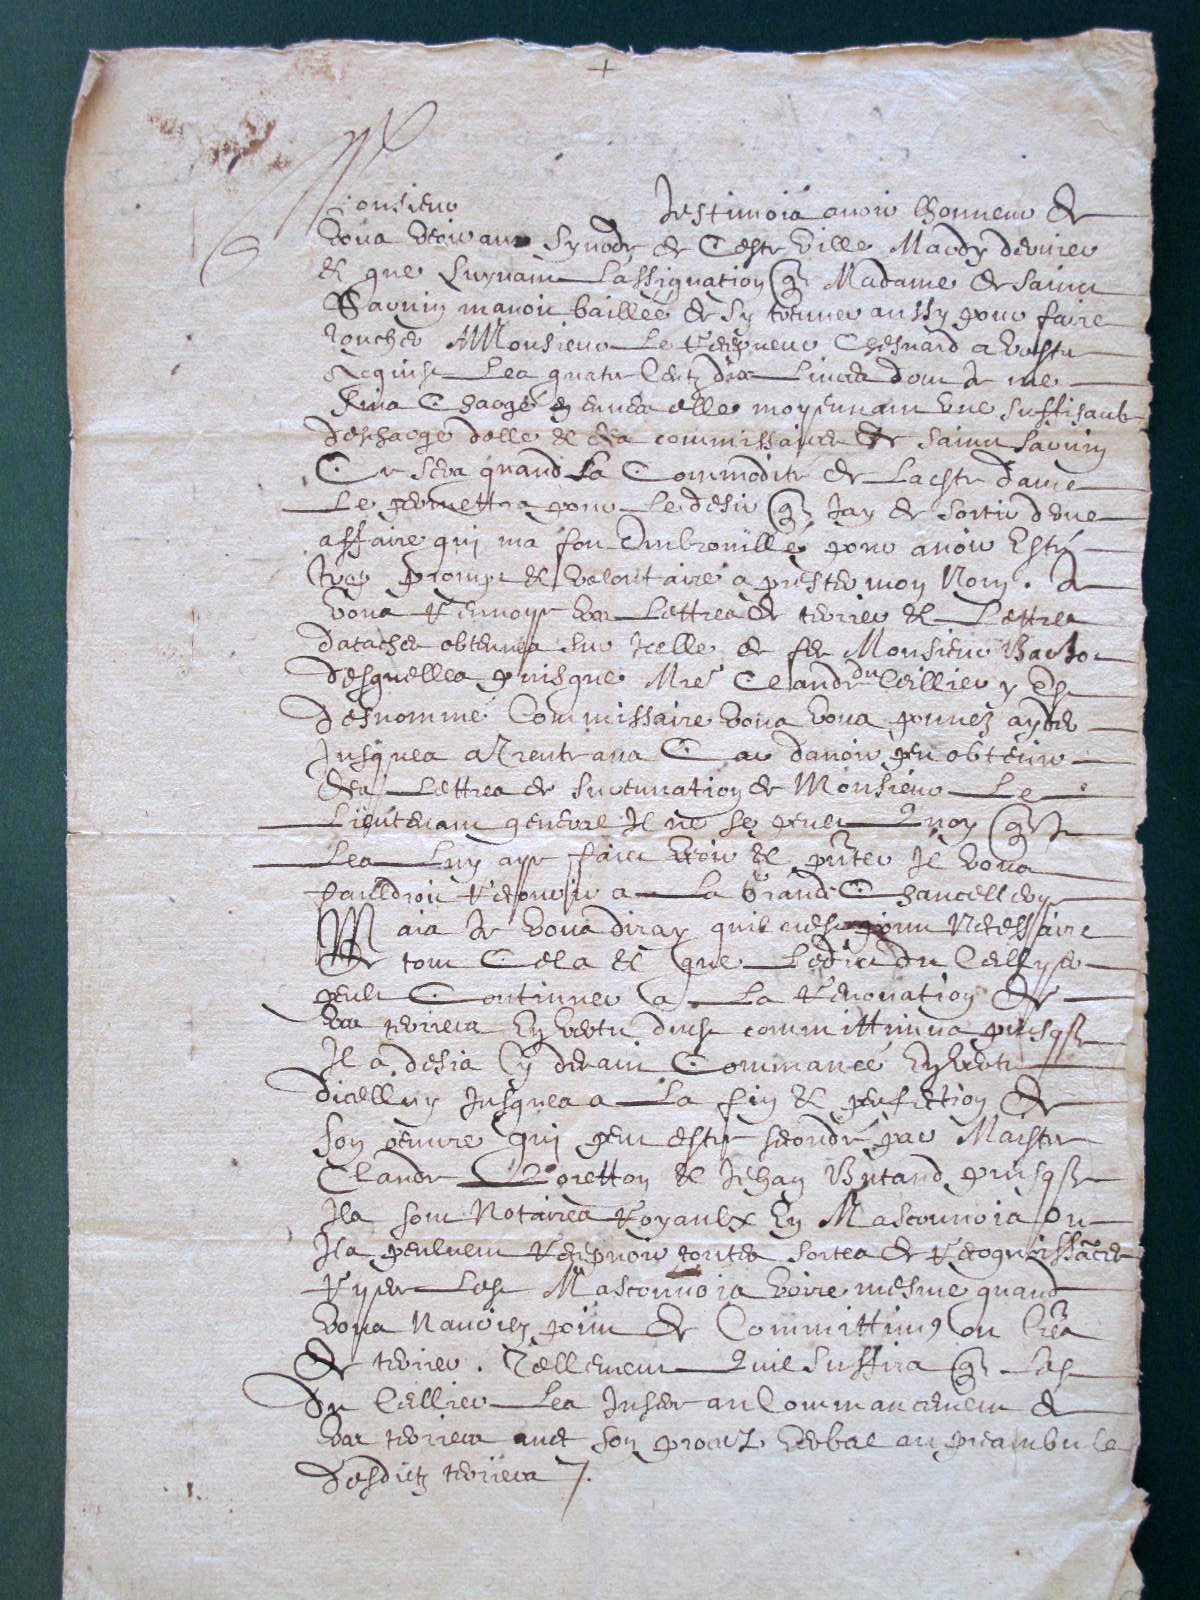 Monsieur Jestimois avoir lhonneur de
vous veoir au synode de ceste ville Mardy dernier
et que suyvant lassignation que Madame de Sainct
Savuin mavoit baillée de sy treuver aussy pour faire
toucher A Monsieur le Recepveur Chesnard a vostre
Acquict les quatre Centz dix livres dont je me
suis Chargé envers elle moyennant une suffisante
descharge delle et des commissaires de sainct Savuin
Ce sera quand la Commodité de lad dame
le permettra pour le desir que Jay de sortir dune
affaire qui ma fort Embrouillé pour avoir Esté
trop prompt et volontaire a prester mon Nom. Je
vous Renvoye vos lettres de terrier et lettres
datache obtenues sur Icelle de feu Monsieur
desquelles puisque Mre Claude du Cellier y est
desnommé Commissaire vous vous pouvez ayder
Jusques a Trente ans Car davoir peu obtenir
des lettres de surannation de Monsieur le
Lieutenant general Il ne se peult Quoy que Je
les luy aye faict veoir et pnter Il vous
fauldroit recourir a la Grande Chancellerie
Mais Je vous diray quil nest point Necessaire
de tout Cela et que ledict du Cellyer
peult Continuer a la Renovation de
vos terriers En vertu dud committimus puisque
Il a desia cy devant Commancé En vertu
dicelluy Jusques a la fin et perfection de
son oeuvre qui peut estre secondé par Maistre
Claude Loretton et Jehan Butand puisque
Ils sont Notaires Royaulx En Masconnois ou
Ils peuvent Recepvoir toutes sortes de Recognoissāces
Ryer les Masconnois voire mesme quand
vous Nauriez point de Committimus ou lres
de terrier. Tellement Quil suffira que led
du Cellier les Insere au Commancement de
vos terriers avec son procez verbal au preambule
desdictz terriers /.